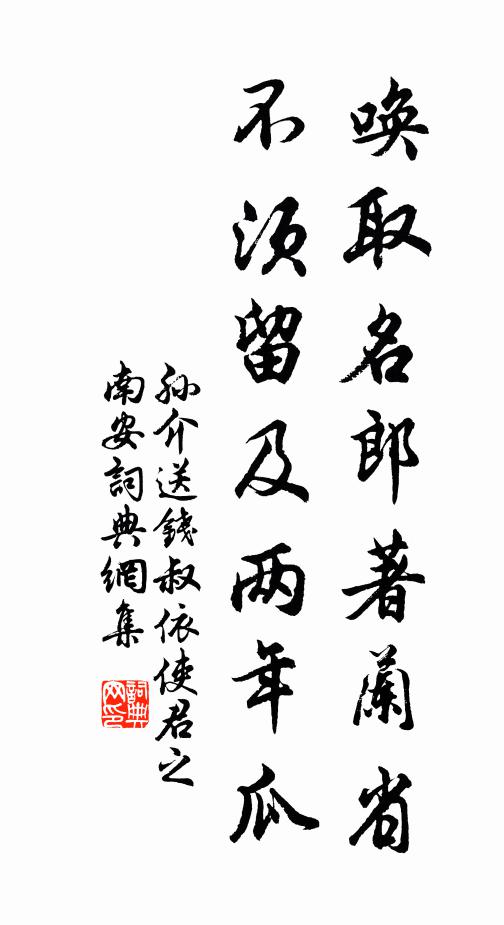 唤取名郎著蘭省
不須留及两年瓜
孙介送錢叔依使君之
南安詞典網集
詞典
网印